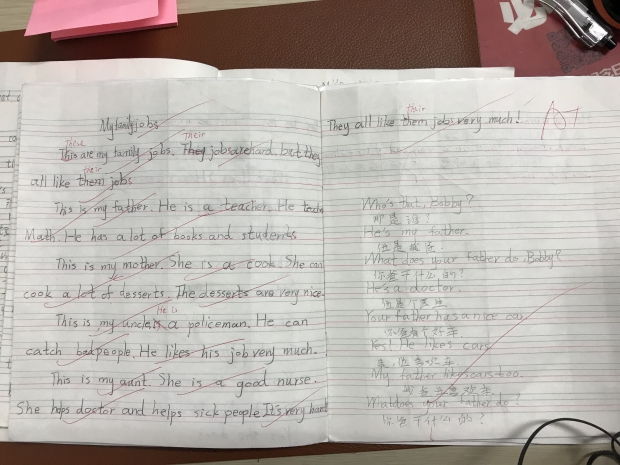 My family jobs
These
Their
This are my family jobs. They jobs are hard. but they
their
all like them jobs
This is my father. He is a teacher. He teach
Math. He has a lot of books and students
This is my mother. She is a cook. She can
cook a lot of desserts. The desserts are very nice.
He is
This is my uncle is a policeman. He can
catch bad people. He likes his job very much.
This is my aunt. She is a good nurse.
She hops doctor and helps sick people. It's very hard
their
They all like them jobs very much!
Who's that, Bobby?
那是谁?
He's my father.
What does your father do, Bobby?
你爸干什么的?
He's a doctor.
Your father has a nice car.
Yes! He likes cars
My father likes cars too.
What does your father do?
你爸干什么的?